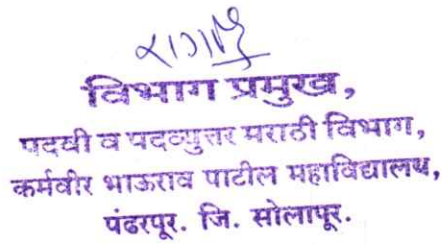 विभाग प्रमुख,
पदवी व पदव्युत्तर मराठी विभाग,
कर्मवीर भाऊराव पाटील महाविद्यालय,
पंढरपूर. जि. सोलापूर.